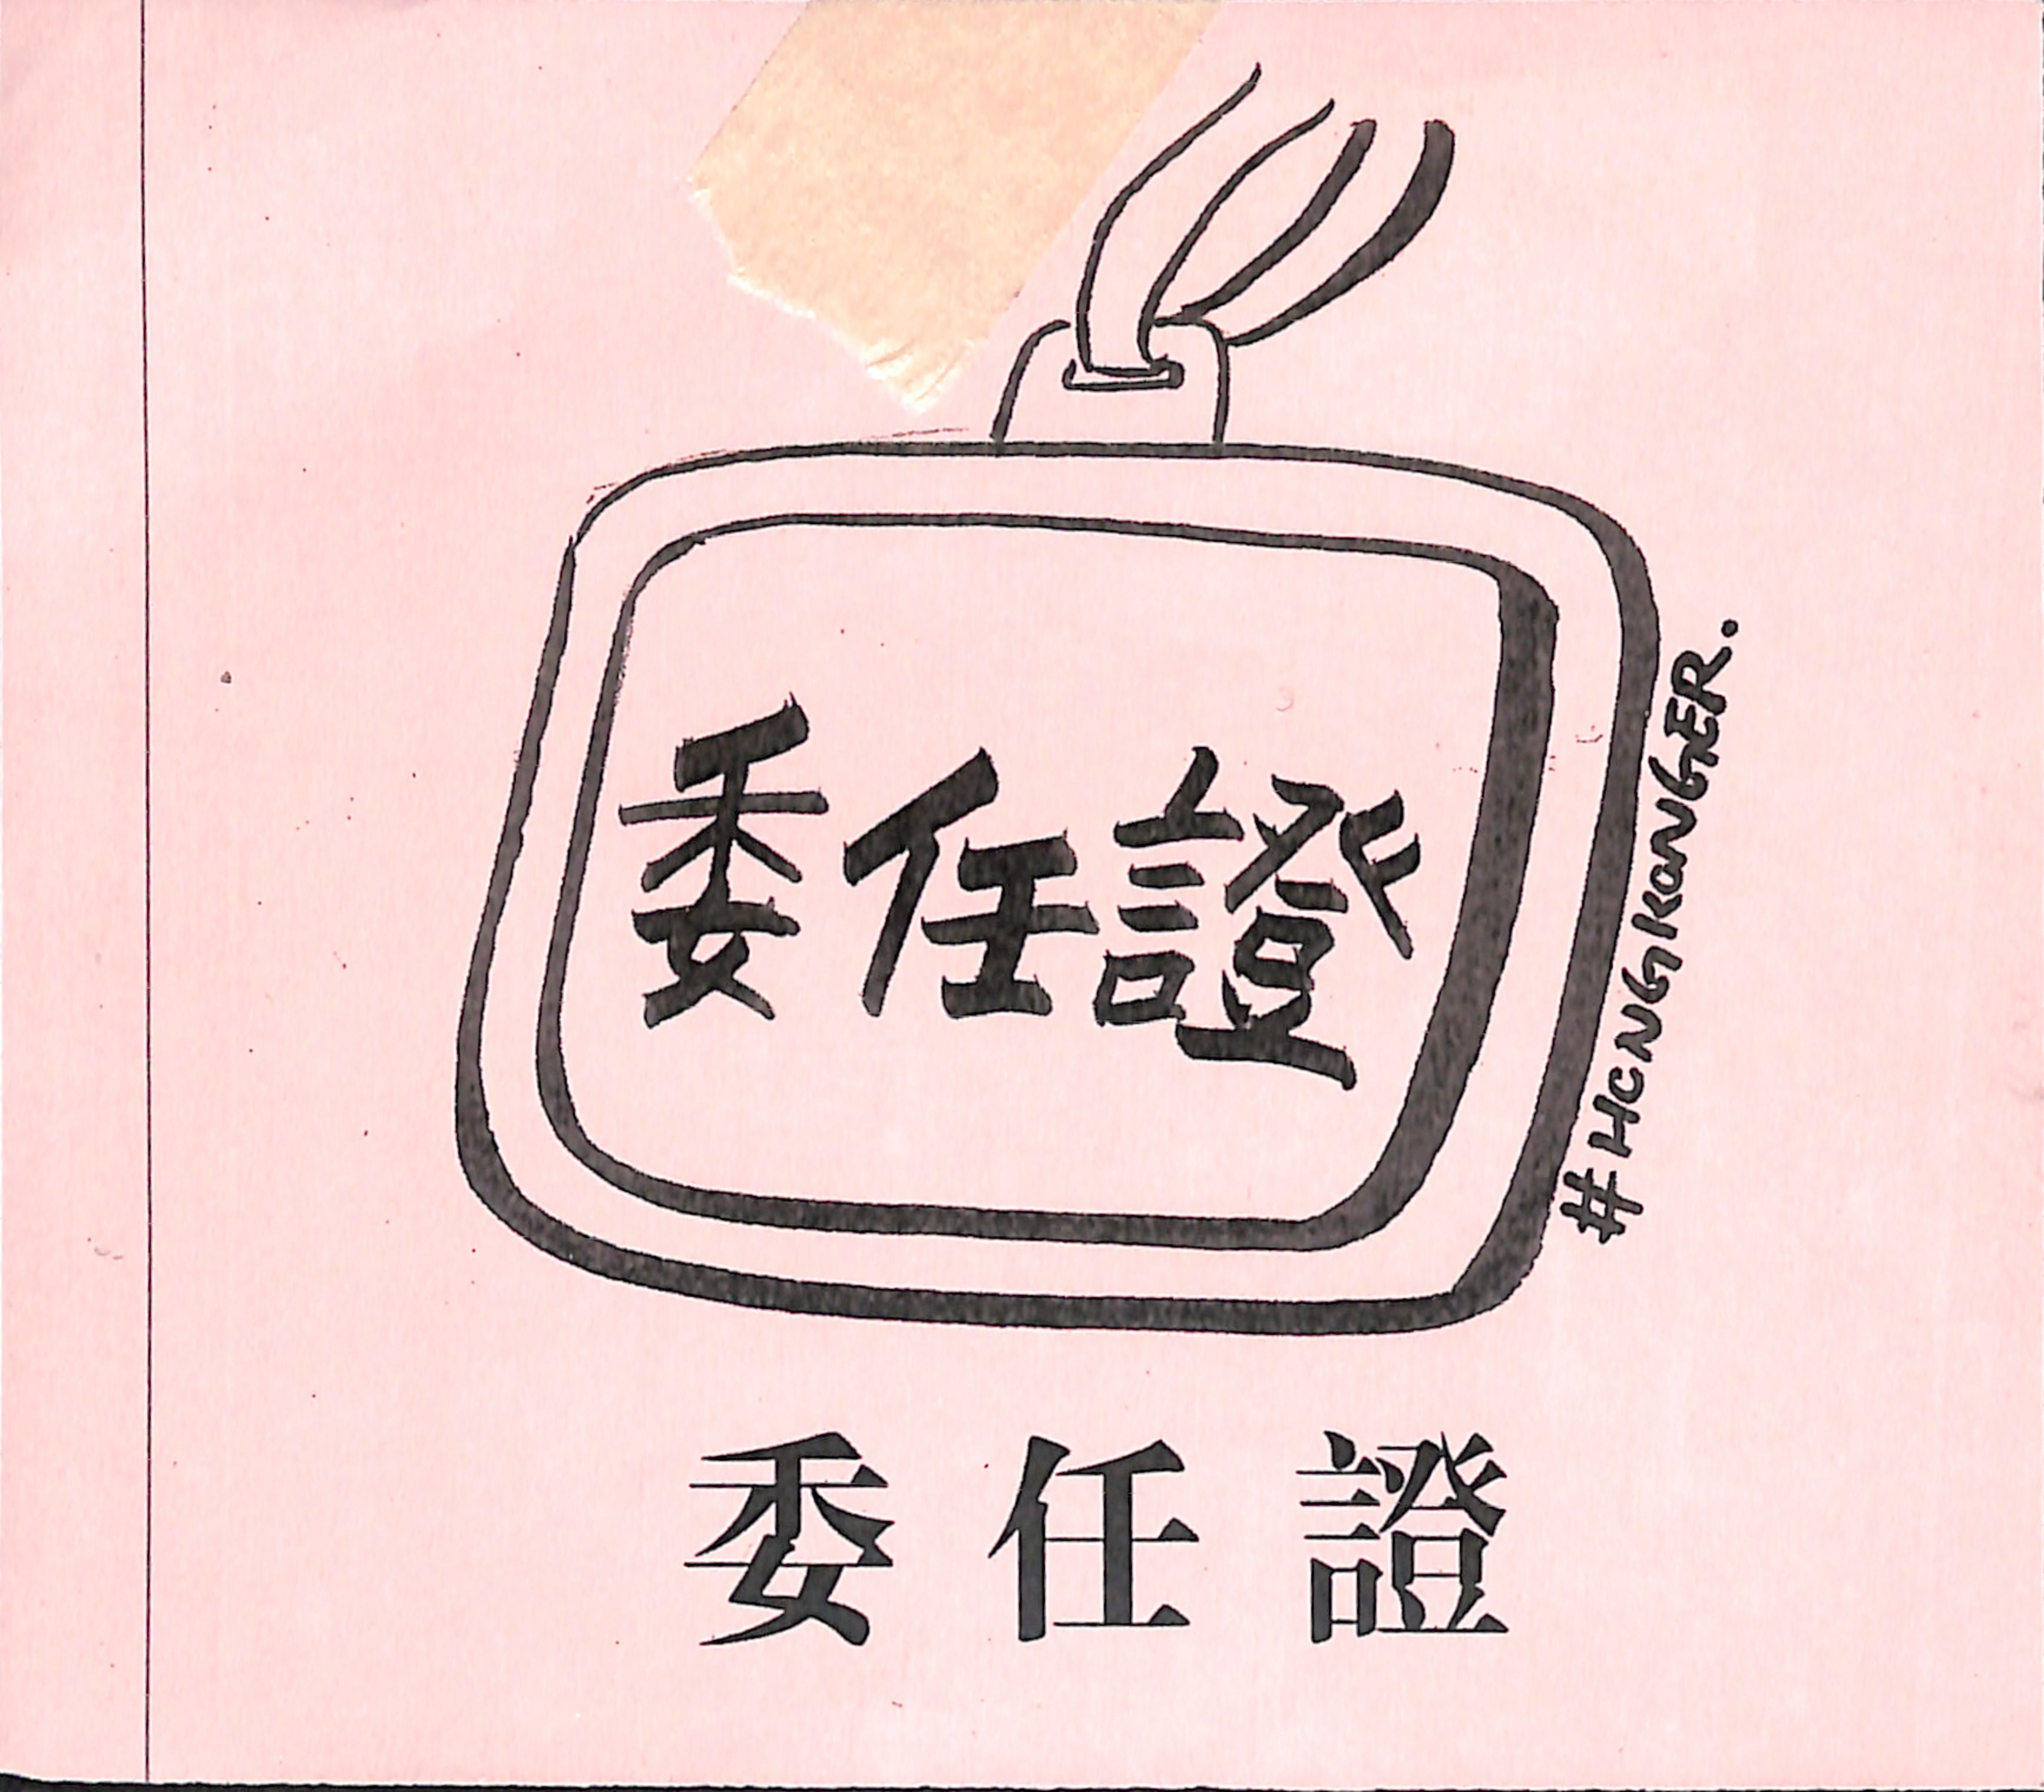 委任證
#HONGKONGER.
委任證